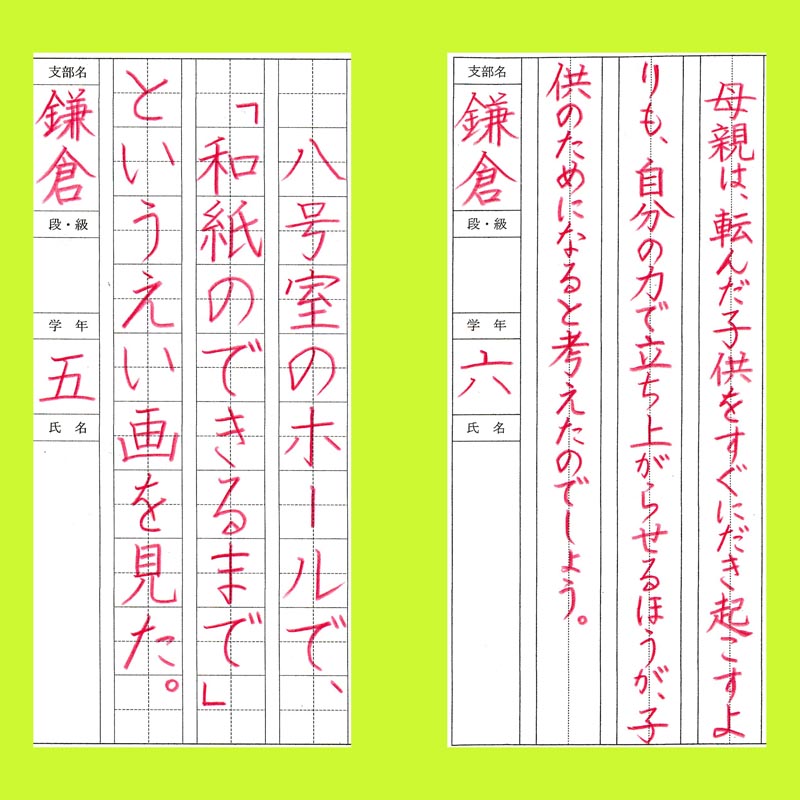 八号室のホールで、
「和紙のできるまで」
というえい画を見た。
支部名
鎌倉
段・級
学年
五
氏名
母親は、転んだ子供をすぐにだき起こすよ
りも、自分の力で立ち上がらせるほうが、子
供のためになると考えたのでしょう。
支部名
鎌倉
段・級
学年
六
氏名